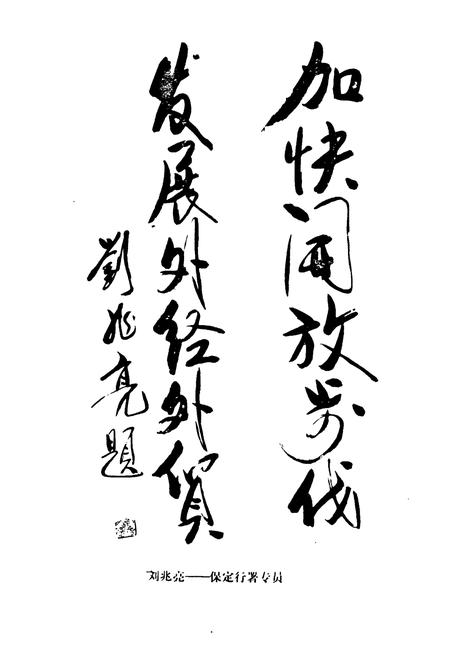 加快開放步伐
发展外经外貿
劉兆亮題
刘兆亮——保定行署专员